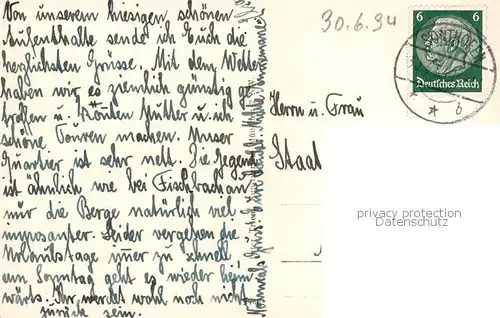 Von unserem hiesigen, schönen
Aufenthalte sende ich Euch die
herzlichsten Grüsse. Mit dem Wetter
haben wir es ziemlich günstig ge-
troffen u. könten Mutter u. ich
schöne Touren machen. Unser
Quartier ist sehr nett. Die Gegend
ist ähnlich wie bei Fischbachau
nur die Berge natürlich viel
imposanter. Leider vergehen die
Urlaubstage imer zu schnell
am Sonntag geht es wieder heim
wärts. Ihr werdet wohl noch nicht
zurück sein.
Nochmals Gruss Eure
30.6.34
6 6
Deutsches Reich
SONTHOFEN
* * b
Herrn u. Frau
Staat
privacy protection
Datenschutz